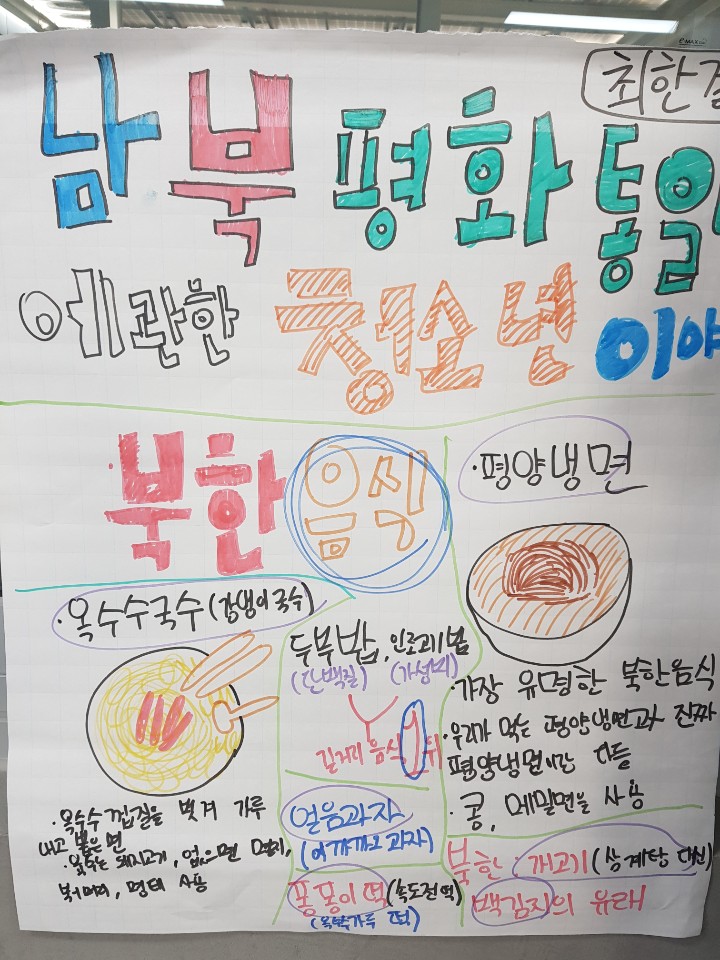 최한결
남북 평화 통일
에 관한 청소년 이야
북한 음식
·평양냉면
·가장 유명한 북한음식
·우리가 먹는 평양냉면과 진짜
평양냉면이란 다름
·콩, 메밀면을 사용
·옥수수국수 (강냉이국수)
·옥수수 껍질을 벗겨 가루
내고 뽑은 면
육수는 돼지고기, 없으면 멸치,
북어머리, 명태 사용
두부밥, 인조고기밥
(단백질) (가성비)
길거리 음식 1위
얼음과자
(에끼끼고 과자)
퐁퐁이 떡 (속도전떡)
(옥수수가루 떡)
북한 : 개고기 (삼계탕 대신)
백김치의 유래